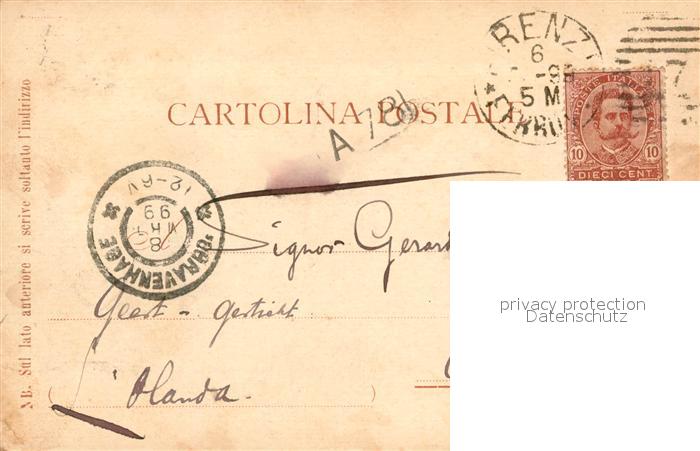 CARTOLINA POSTALE
NB. Sul lato anteriore si scrive soltanto l'indirizzo
RENZ
6
5 M
FERROV
POSTE ITALIANE
10 10
DIECI CENT.
A 781
'SGRAVENHAGE
8
MRT
99
12-6V
Signor Gerard
Geert - gesticht
Olanda.
privacy protection
Datenschutz